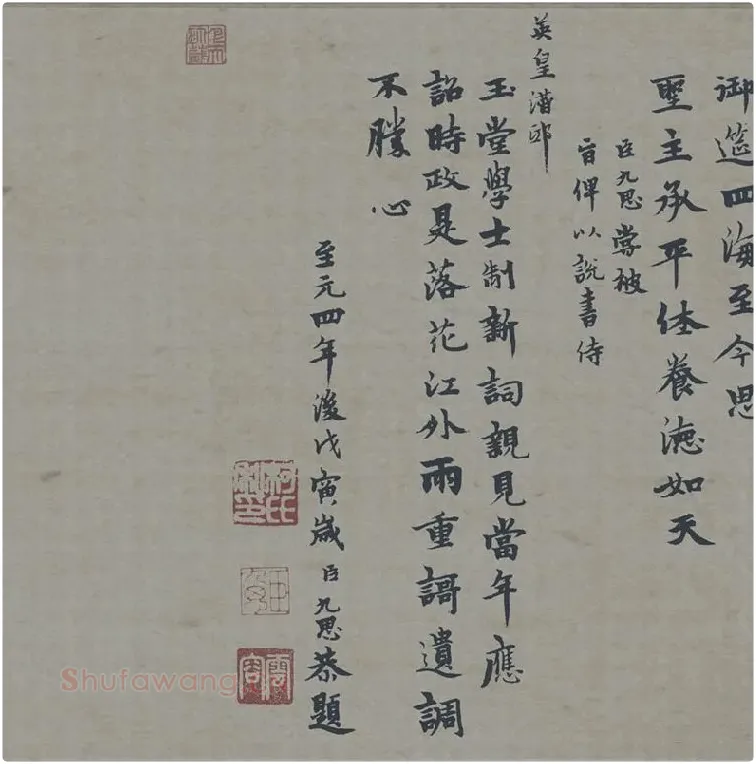 御筵四海至今思
聖主承平休養德如天
臣九思嘗被
旨俾以說書侍
英皇潛邸
玉堂學士制新詞親見當年應
詔時政是落花江外雨重謌遺調
不勝心
至元四年後戊寅歲臣九思恭題
Shufawang